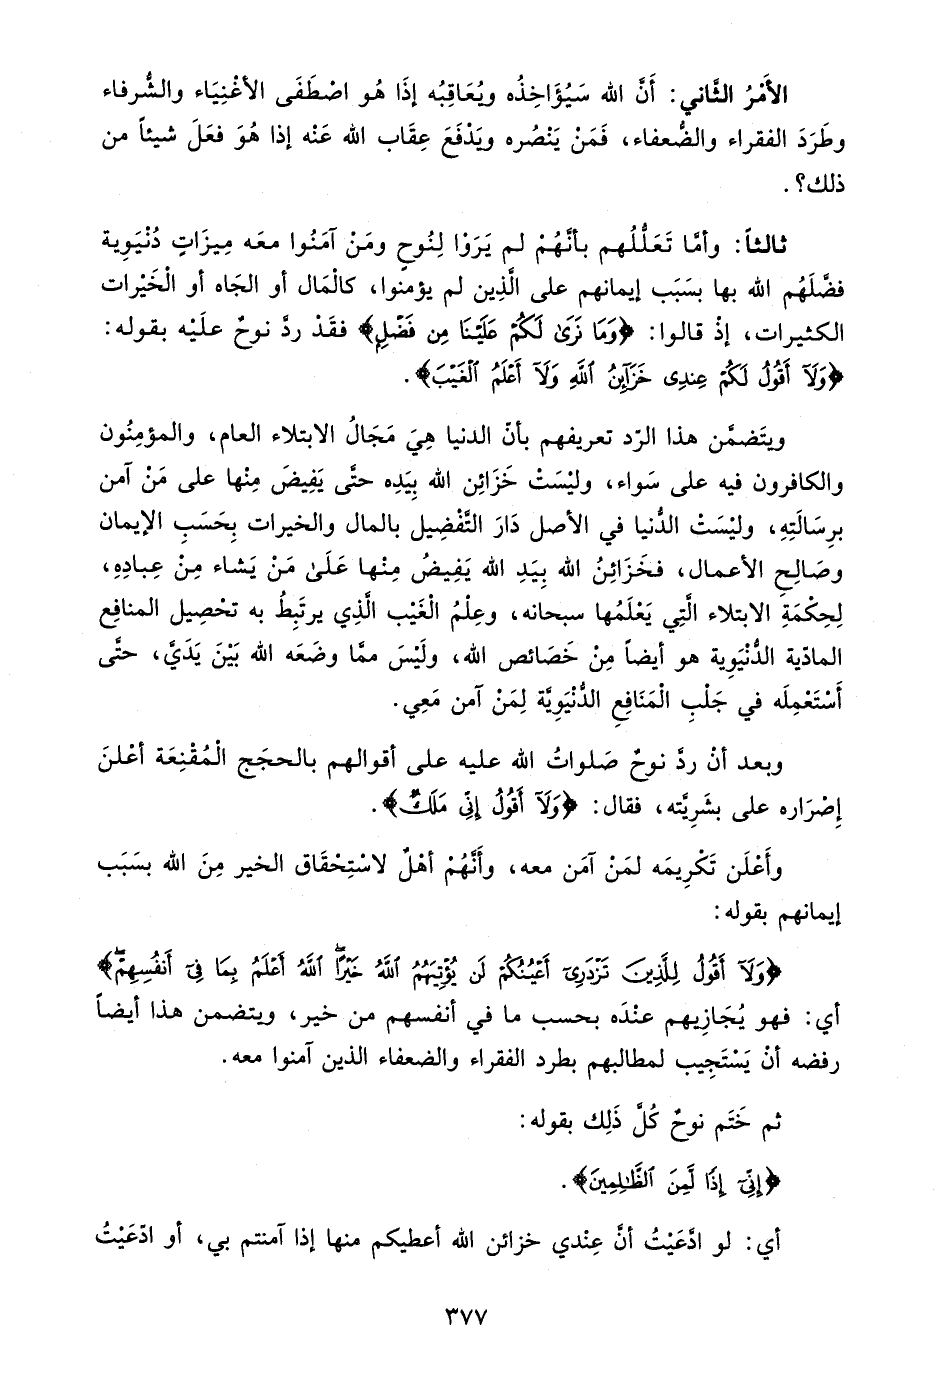 الأَمْرُ الثَّاني: أَنَّ الله سَيُؤَاخِذُه ويُعَاقِبُه إذَا هُو اصْطَفَى الأغْنِيَاء والشُّرفاء
وطَرَدَ الفقراء والضُّعفاء، فَمَنْ يَنْصُره ويَدْفَعَ عِقَاب الله عَنْه إذا هُوَ فعَلَ شيئاً من
ذلك؟.
ثالثاً: وأمَّا تَعَلُّلُهم بأنَّهُمْ لم يَرَوْا لِنُوحٍ ومَنْ آمَنُوا معَه مِيزَاتٍ دُنْيَوِية
فضَّلَهُم الله بها بسَبَب إيمانهم على الَّذِين لم يؤمنوا، كالْمَال أو الجَاه أو الْخَيْرات
الكثيرات، إذْ قالوا: ﴿وَمَا نَرَىٰ لَكُمْ عَلَيْنَا مِن فَضْلِۭ﴾ فقَدْ ردَّ نوحٌ علَيْه بقوله:
﴿وَلَآ أَقُولُ لَكُمْ عِندِى خَزَآئِنُ ٱللَّهِ وَلَآ أَعْلَمُ ٱلْغَيْبَ﴾.
ويتَضمَّن هذا الرّد تعريفهم بأنّ الدنيا هِيَ مَجَالُ الابتلاء العام، والمؤمِنُون
والكافرون فيه على سَواء، وليْسَتْ خَزَائِن الله بِيَدِه حتَّى يَفِيضَ مِنْها على مَنْ آمن
برِسَالَتِهِ، وليْسَتْ الدُّنيا في الأصل دَارَ التَّفْضِيل بالمال والخيرات بِحَسَبِ الإيمان
وصَالِحِ الأعمال، فخَزَائِنُ الله بِيَدِ الله يَفِيضُ مِنْها عَلَىٰ مَنْ يَشاء مِنْ عِبادِهِ،
لِحِكْمَةِ الابتلاء الَّتِي يَعْلَمُها سبحانه، وعِلْمُ الْغَيْب الَّذِي يرتَبِطُ به تحْصِيل المنافع
المادّية الدُّنْيَوِية هو أيضاً مِنْ خَصَائص الله، ولَيْسَ ممَّا وضَعَه الله بَيْنَ يَدَيَّ، حتَّى
أَسْتَعْمِلَه في جَلْبِ الْمَنَافِع الدُّنْيَوِيَّة لِمَنْ آمن مَعِي.
وبعد أنْ ردَّ نوحٌ صَلواتُ الله عليه على أقوالهم بالحجَج الْمُقْنِعَة أعْلنَ
إصْرَاره على بشَرِيَّته، فقال: ﴿وَلَآ أَقُولُ إِنِّى مَلَكٌ﴾.
وأَعْلَن تَكْرِيمَه لمَنْ آمَن معه، وأَنَّهُمْ أهْلٌ لاسْتِحْقَاق الخير مِنَ الله بسَبَب
إيمانهم بقوله:
﴿وَلَآ أَقُولُ لِلَّذِينَ تَزْدَرِىٓ أَعْيُنُكُمْ لَن يُؤْتِيَهُمُ ٱللَّهُ خَيْرًا ۖ ٱللَّهُ أَعْلَمُ بِمَا فِىٓ أَنفُسِهِمْ ۖ﴾
أي: فهو يُجَازِيهم عنْدَه بحسب ما في أنفسهم من خير، ويتضمن هذا أيضاً
رفضه أنْ يَسْتَجِيب لمطالبهم بطرد الفقراء والضعفاء الذين آمنوا معه.
ثم خَتَم نوحٌ كُلَّ ذَلِك بقوله:
﴿إِنِّىٓ إِذًا لَّمِنَ ٱلظَّـٰلِمِينَ﴾.
أي: لو ادَّعَيْتُ أنَّ عِنْدي خزائن الله أعطيكم منها إذا آمنتم بي، أو ادّعَيْتُ
٣٧٧